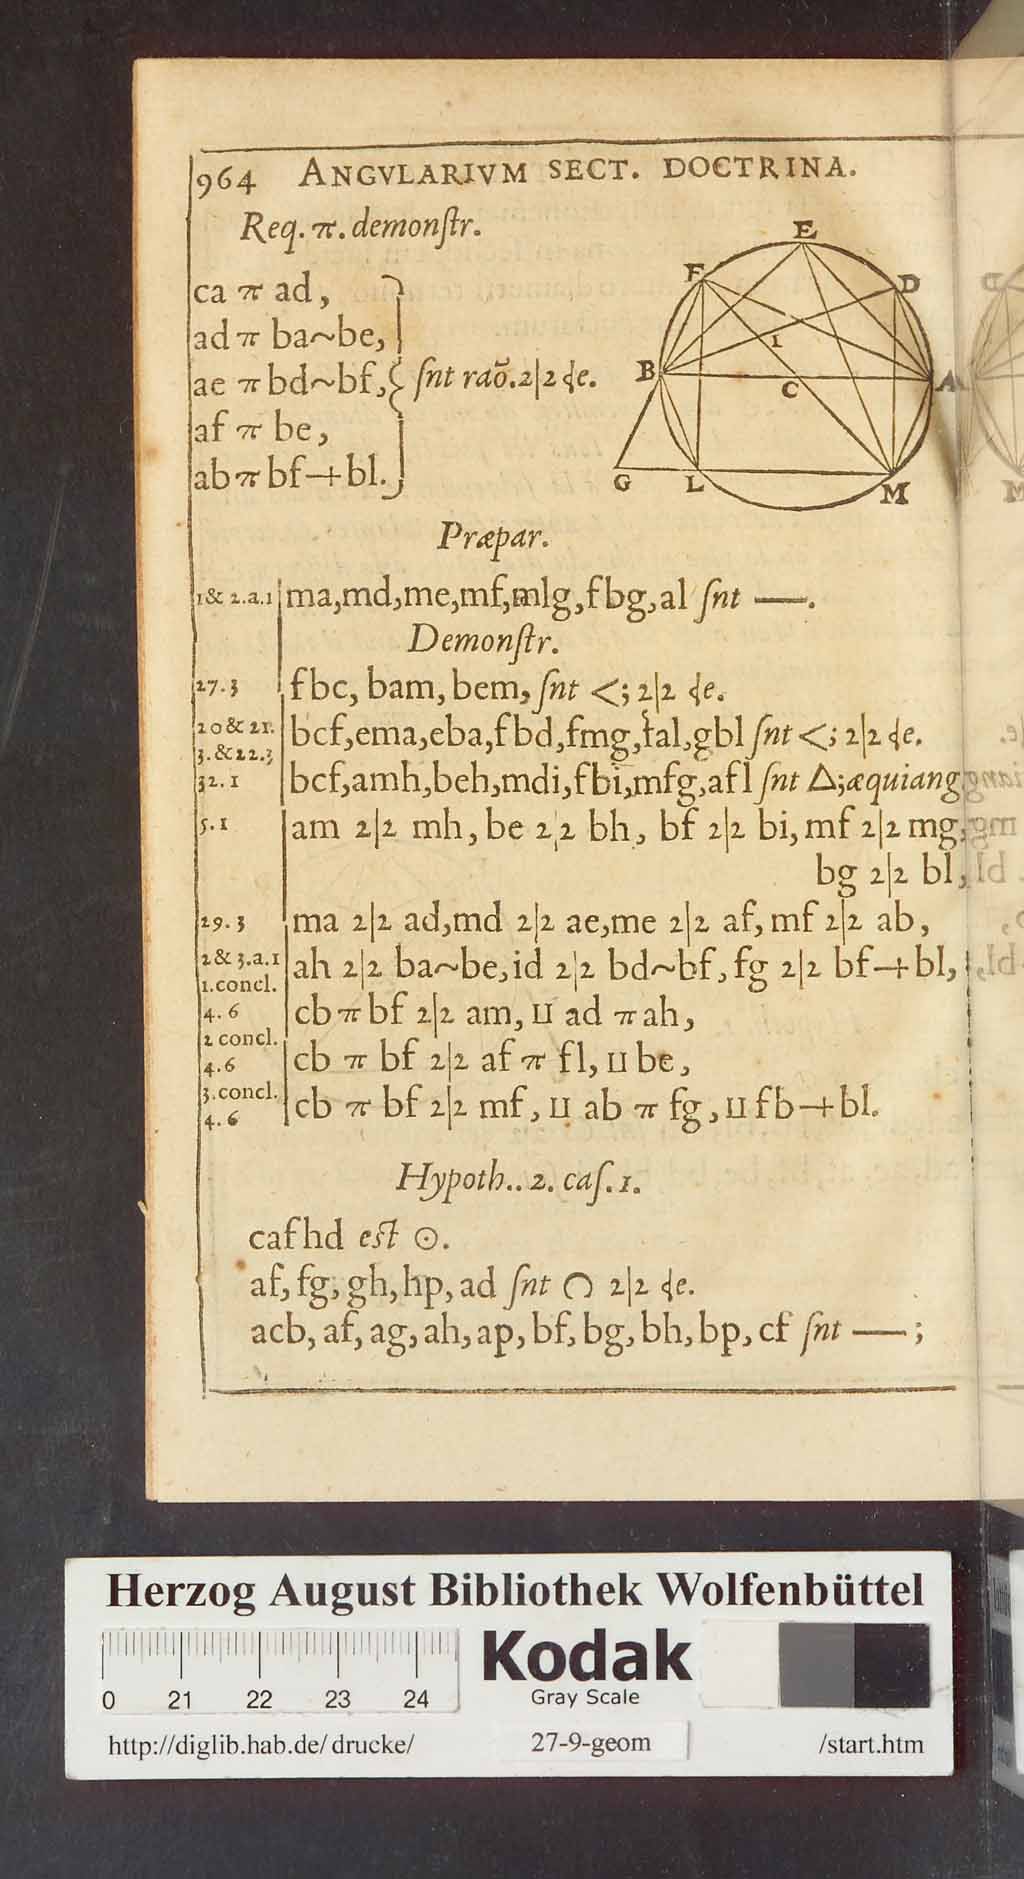 964 ANGVLARIVM SECT. DOCTRINA.
Req. π. demonſtr.
ca π ad,
ad π ba~be,
ae π bd~bf, ſnt raõ. 2|2 ɖe.
af π be,
ab π bf+bl.
E
F
D
I
B
C
A
G
L
M
Præpar.
1& 2.a.1 ma,md,me,mf,mlg,fbg,al ſnt —.
Demonſtr.
27.3 fbc, bam, bem, ſnt <; 2|2 ɖe.
20 & 21. bcf,ema,eba,fbd,fmg,fal,gbl ſnt <; 2|2 ɖe.
3.&22.3
32.1 bcf,amh,beh,mdi,fbi,mfg,afl ſnt Δ;æquiang
5.1 am 2|2 mh, be 2|2 bh, bf 2|2 bi, mf 2|2 mg,
bg 2|2 bl,
29.3 ma 2|2 ad,md 2|2 ae,me 2|2 af, mf 2|2 ab,
2& 3.a.1 ah 2|2 ba~be,id 2|2 bd~bf,fg 2|2 bf+bl,
1.concl.
4.6 cb π bf 2|2 am, ⊔ ad π ah,
2 concl.
4.6 cb π bf 2|2 af π fl, ⊔ be,
3.concl. cb π bf 2|2 mf, ⊔ ab π fg, ⊔ fb+bl.
4.6
Hypoth.. 2. caſ. 1.
cafhd eſt ⊙.
af, fg, gh, hp, ad ſnt ∩ 2|2 ɖe.
acb, af, ag, ah, ap, bf, bg, bh, bp, cf ſnt — ;
Herzog August Bibliothek Wolfenbüttel
0 21 22 23 24
Kodak
Gray Scale
http://diglib.hab.de/drucke/ 27-9-geom /start.htm